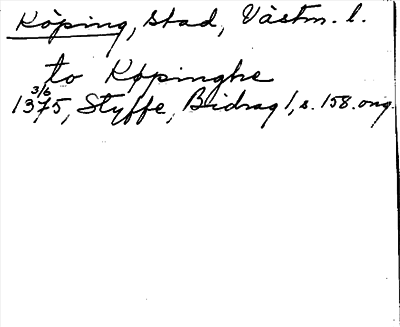 Köping, stad, Västm. l.
to Køpinghe
1375, 3/6 Styffe, Bidrag 1, s. 158. orig.